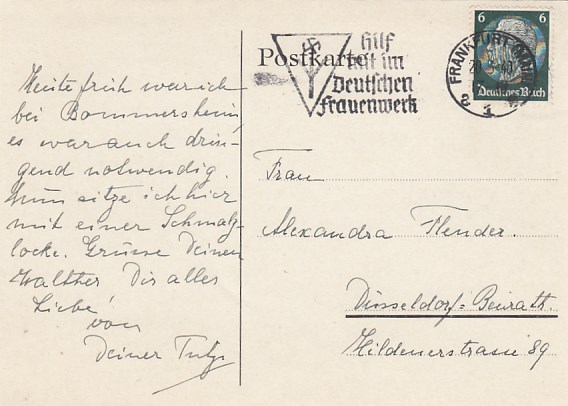 Postkarte
Hilf
mit im
Deutschen
Frauenwerk
FRANKFURT (MAIN)
6 6
Deutsches Reich
Heute früh war ich
bei Bommersheim
es war auch drin-
gend notwendig.
Nun sitze ich hier
mit einer Schmalz-
locke. Grüsse Deinen
Walther Dir alles
Liebe
von
Deiner
Frau
Alexandra Flender.
Düsseldorf-Benrath.
Hildenerstrasse 89